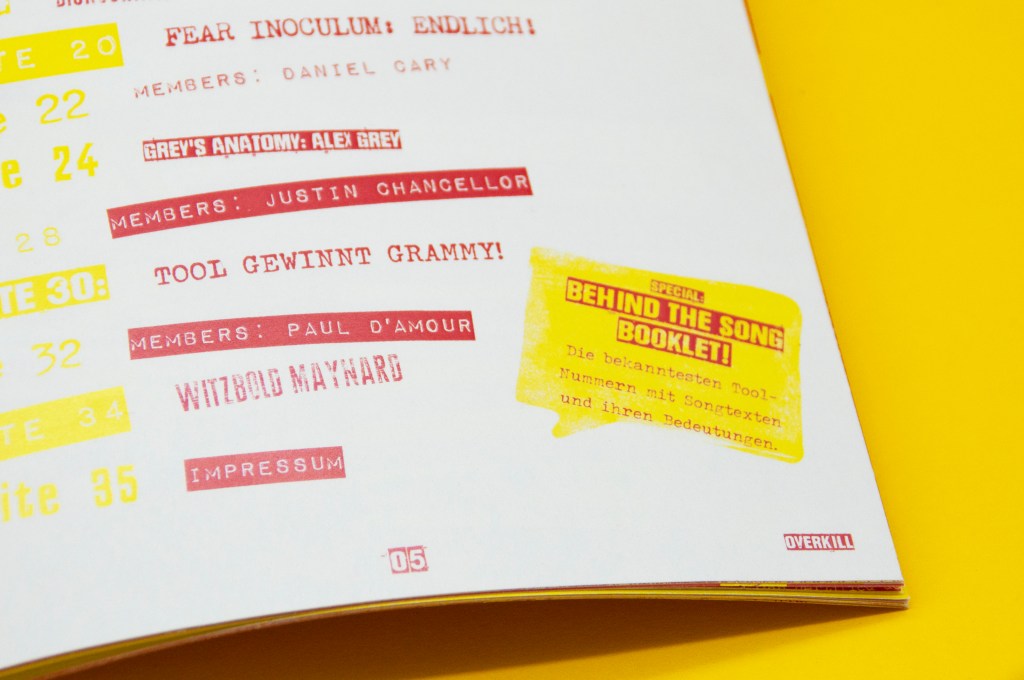 TE 20 FEAR INOCULUM: ENDLICH!
e 22 MEMBERS: DANIEL CARY
e 24 GREY'S ANATOMY: ALEX GREY
28 MEMBERS: JUSTIN CHANCELLOR
TE 30: TOOL GEWINNT GRAMMY!
e 32 MEMBERS: PAUL D'AMOUR
TE 34 WITZBOLD MAYNARD
ite 35 IMPRESSUM
SPECIAL:
BEHIND THE SONG
BOOKLET!
Die bekanntesten Tool-
Nummern mit Songtexten
und ihren Bedeutungen.
05
OVERKILL